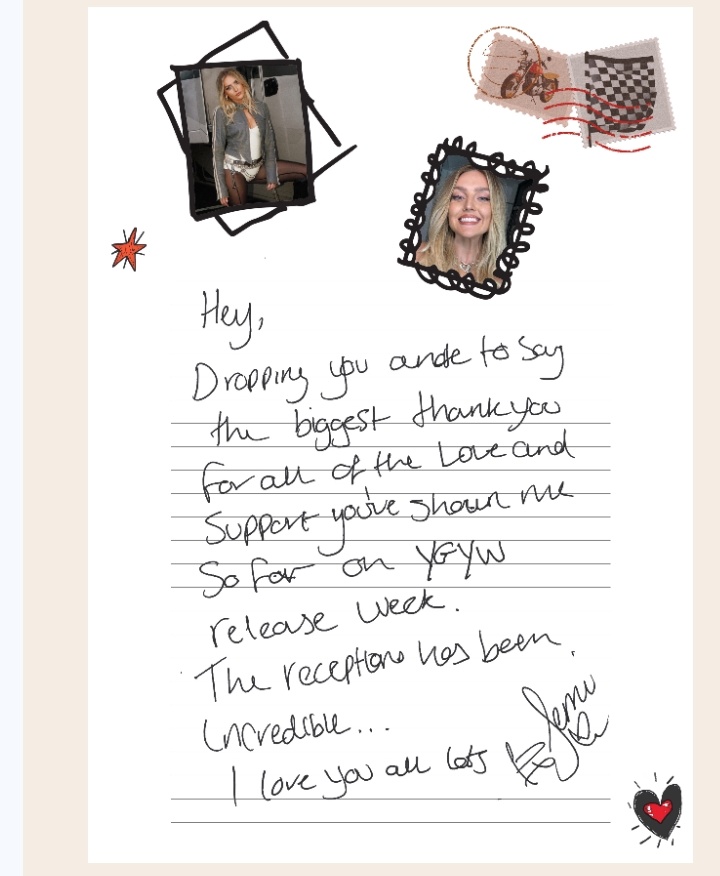 Hey,
Dropping you a note to say
the biggest thank you
for all of the Love and
Support you've shown me
So far on YGYW
release week.
The reception has been
incredible...
I love you all lots